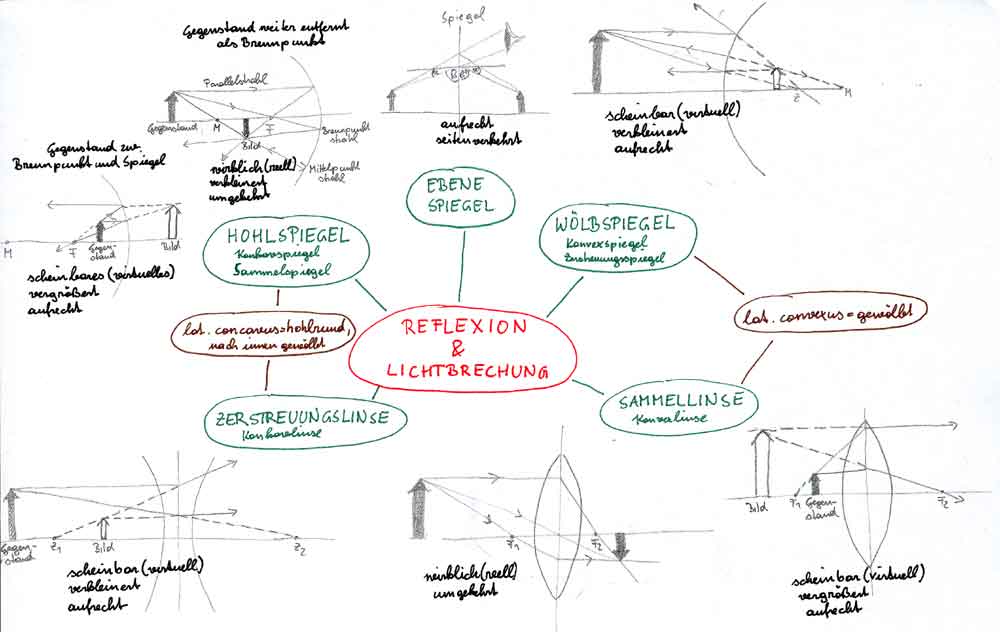 Gegenstand weiter entfernt
als Brennpunkt
Parallelstrahl
Gegenstand
M
F
Bild
Brennpunkt
strahl
Mittelpunkt
strahl
wirklich (reell)
verkleinert
umgekehrt
Spiegel
aufrecht
seitenverkehrt
Z
M
scheinbar (virtuell)
verkleinert
aufrecht
Gegenstand zw.
Brennpunkt und Spiegel
M
F
Gegen-
stand
Bild
scheinbares (virtuelles)
vergrößert
aufrecht
EBENE
SPIEGEL
HOHLSPIEGEL
Konkavspiegel
Sammelspiegel
WÖLBSPIEGEL
Konvexspiegel
Zerstreuungsspiegel
lat. concavus=hohlrund,
nach innen gewölbt
REFLEXION
&
LICHTBRECHUNG
lat. convexus = gewölbt
ZERSTREUUNGSLINSE
Konkavlinse
SAMMELLINSE
Konvexlinse
Gegen-
stand
Z1
Bild
Z2
scheinbar (virtuell)
verkleinert
aufrecht
F1
F2
wirklich (reell)
umgekehrt
Bild
F1
Gegen-
stand
F2
scheinbar (virtuell)
vergrößert
aufrecht